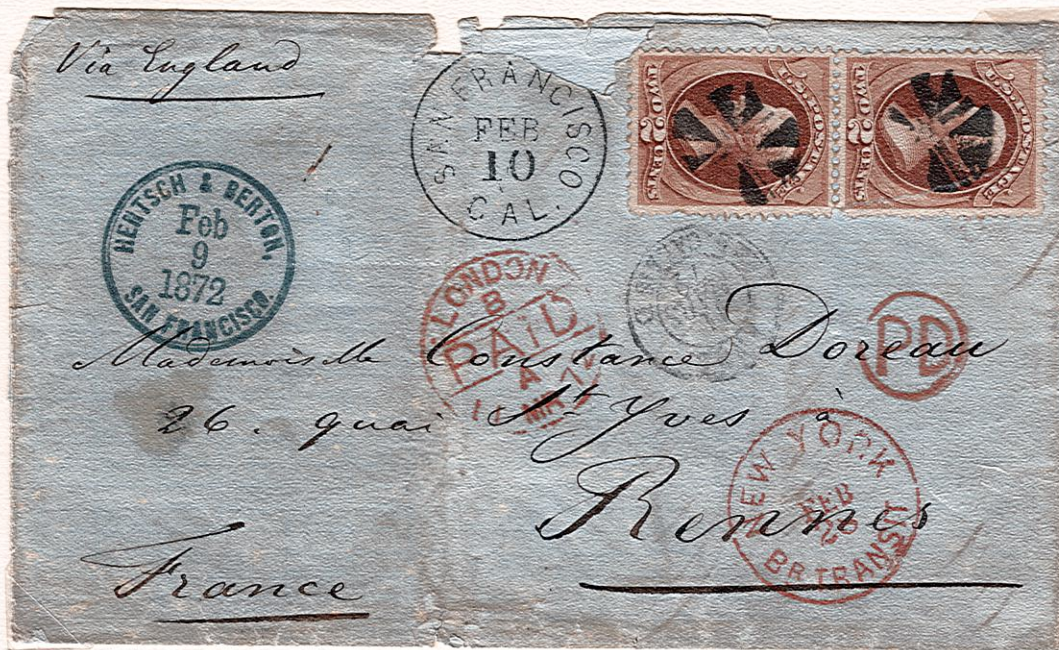 Via England
SAN FRANCISCO
FEB
10
CAL.
U.S. POSTAGE
TWO 2 CENTS
U.S. POSTAGE
TWO 2 CENTS
HENTSCH & BERTON,
Feb
9
1872
SAN FRANCISCO.
LONDON
PAID
PD
Mademoiselle Constance Doreau
26. quai St Yves à
Rennes
France
NEW YORK
FEB
BR. TRANSIT